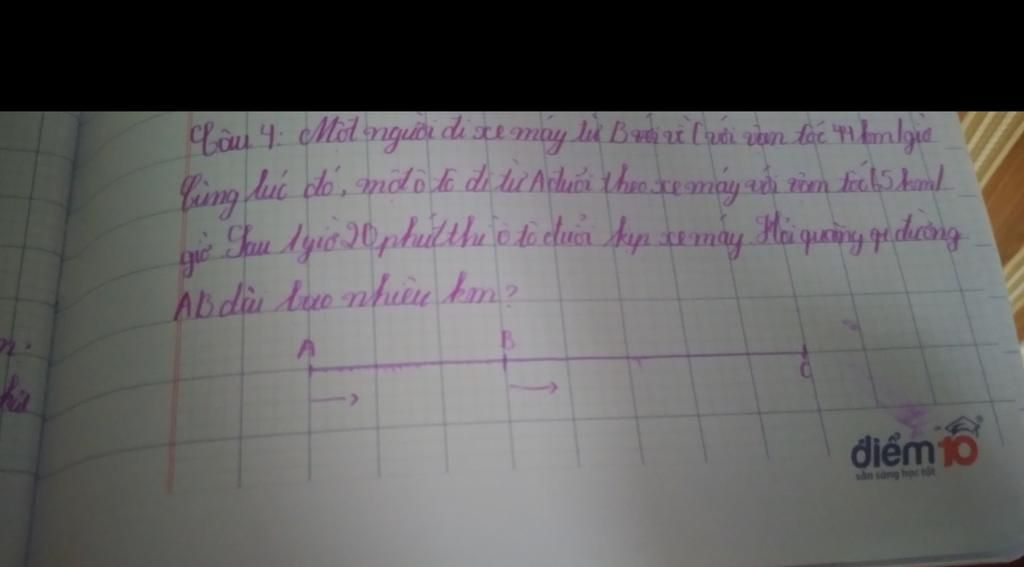 Câu 4: Một người đi xe máy từ B về C với vận tốc 44 km/giờ
Cùng lúc đó, một ô tô đi từ A đuổi theo xe máy với vận tốc 65 km/
giờ Sau 1 giờ 20 phút thì ô tô đuổi kịp xe máy Hỏi quãng đường
AB dài bao nhiêu km?
A B
C
điểm10
sẵn sàng học tốt